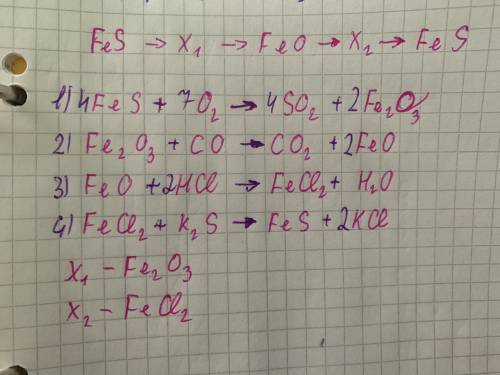 FeS → X₁ → FeO → X₂ → FeS
1) 4FeS + 7O₂ → 4SO₂ + 2Fe₂O₃
2) Fe₂O₃ + CO → CO₂ + 2FeO
3) FeO + 2HCl → FeCl₂ + H₂O
4) FeCl₂ + K₂S → FeS + 2KCl
X₁ - Fe₂O₃
X₂ - FeCl₂